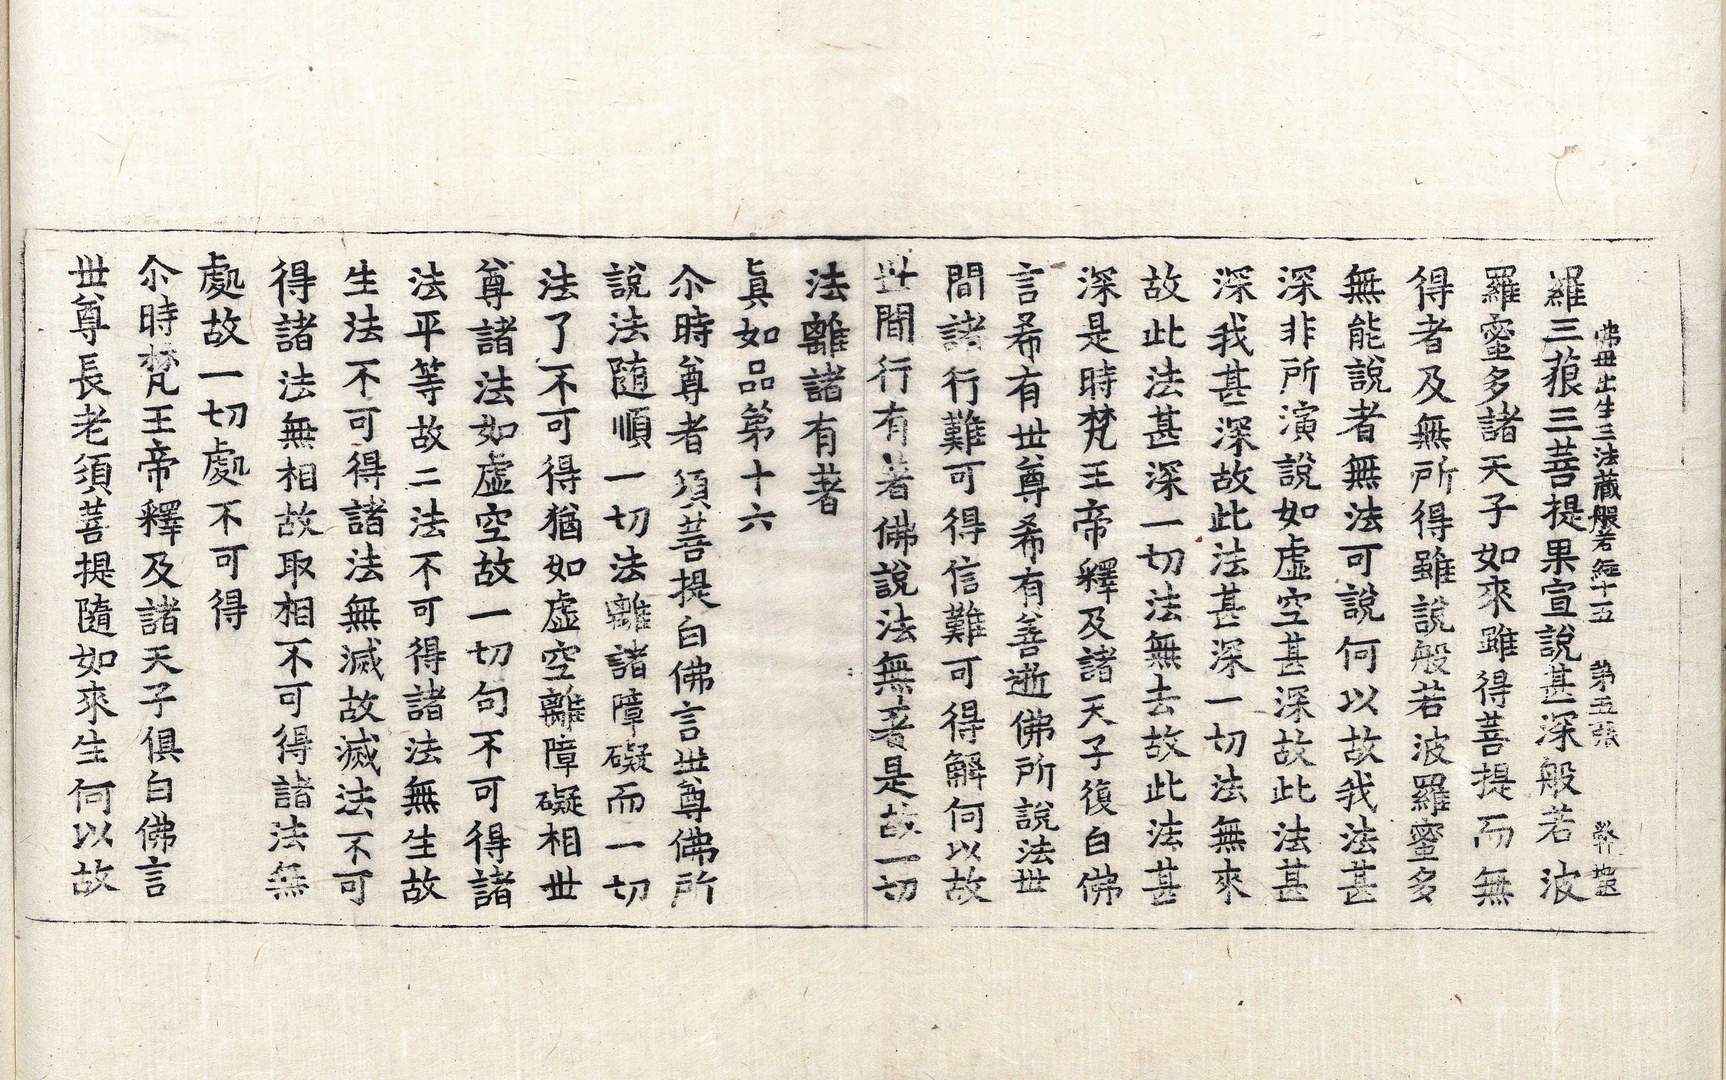 佛母出生三法藏般若經十五 第五張
羅三藐三菩提果宣說甚深般若波
羅蜜多諸天子如來雖得菩提而無
得者及無所得雖說般若波羅蜜多
無能說者無法可說何以故我法甚
深非所演說如虛空甚深故此法甚
深我甚深故此法甚深一切法無來
故此法甚深一切法無去故此法甚
深是時梵王帝釋及諸天子復白佛
言希有世尊希有善逝佛所說法世
間諸行難可得信難可得解何以故
世間行有著佛說法無著是故一切
法離諸有著
眞如品第十六
尒時尊者須菩提白佛言世尊佛所
說法隨順一切法離諸障礙而一切
法了不可得猶如虛空離障礙相世
尊諸法如虛空故一切句不可得諸
法平等故二法不可得諸法無生故
生法不可得諸法無滅故滅法不可
得諸法無相故取相不可得諸法無
處故一切處不可得
尒時梵王帝釋及諸天子俱白佛言
世尊長老須菩提隨如來生何以故